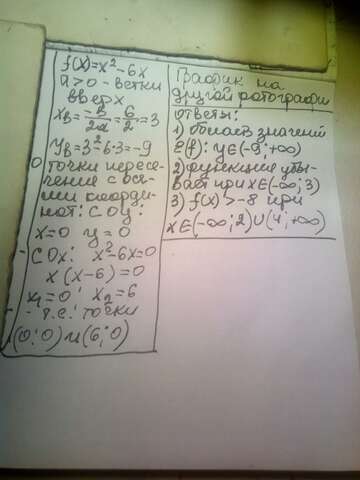 f(x)=x²-6x
a>0 - ветки
вверх
xв=-в/2а=6/2=3
yв=3²-6·3=-9
точки пересе-
чение с ося-
ми коорди-
нат: С ОУ:
x=0 y=0
СОх: x²-6x=0
x(x-6)=0
x₁=0; x₂=6
т.е. точки
(0;0) и (6;0)
График на
другой фотографи
ответы:
1) область значений
E(f): y∈(-9;+∞)
2) функция убы-
вает при x∈(-∞;3)
3) f(x)>-8 при
x∈(-∞;2)∪(4;+∞)